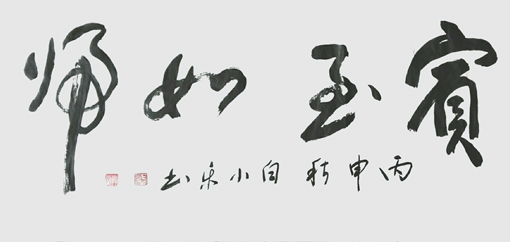 賓至如歸
丙申秋白小书